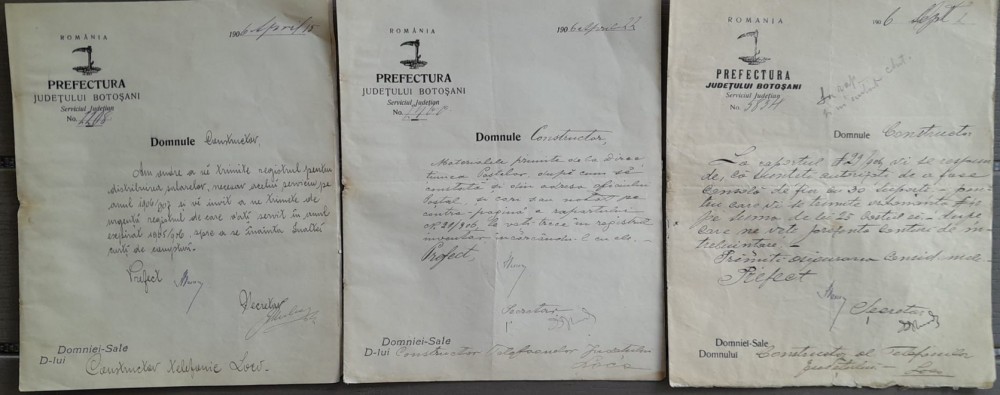 ROMÂNIA
1906 April 15
PREFECTURA
JUDEȚULUI BOTOȘANI
Serviciul Județian
No. 2208
Domnule Constructor,
Am onore a vĕ trimite registrul pentru
distribuirea
necesar acelui serviciu pe
anul 1906/907 și vĕ invit a ne trimete de
urgență registrul de care v'ați servit în anul
expirat 1905/906, spre a se înainta Înaltei
curți de compturi.
Prefect
Secretar
Domniei-Sale
D-lui
Constructor Telefonic Loco.
ROMÂNIA
1906 April 22
PREFECTURA
JUDEȚULUI BOTOȘANI
Serviciul Județian
No.
Domnule Constructor,
Materialele primite de la Direc
țiunea Postelor, după cum se
constată și din adresa oficiului
Postal și cari sau notat pe
contra-pagina a raportului
No. 21/906, le veți trece în registrul
inventar încărcându-l cu ele.
Prefect,
Secretar
Domniei-Sale
D-lui Constructor Telefoanelor Județului
Loco
ROMANIA
1906 Sept 2
PREFECTURA
JUDEȚULUI BOTOȘANI
Serviciul Județian
No. 5834
Domnule Constructor
La raportul
vi se respun
de, că sunteți autorizat de a face
Consolă de fer cu 30 suporți - pen
tru care vi se trimite
pe suma de lei 25 costul ei - dupe
care ne veți presenta contul de în
trebuințare. -
Primiți asigurarea consid. mele
Prefect
Secretar
Domniei-Sale
Domnului Constructor al Telefonelor
Județului - Loco